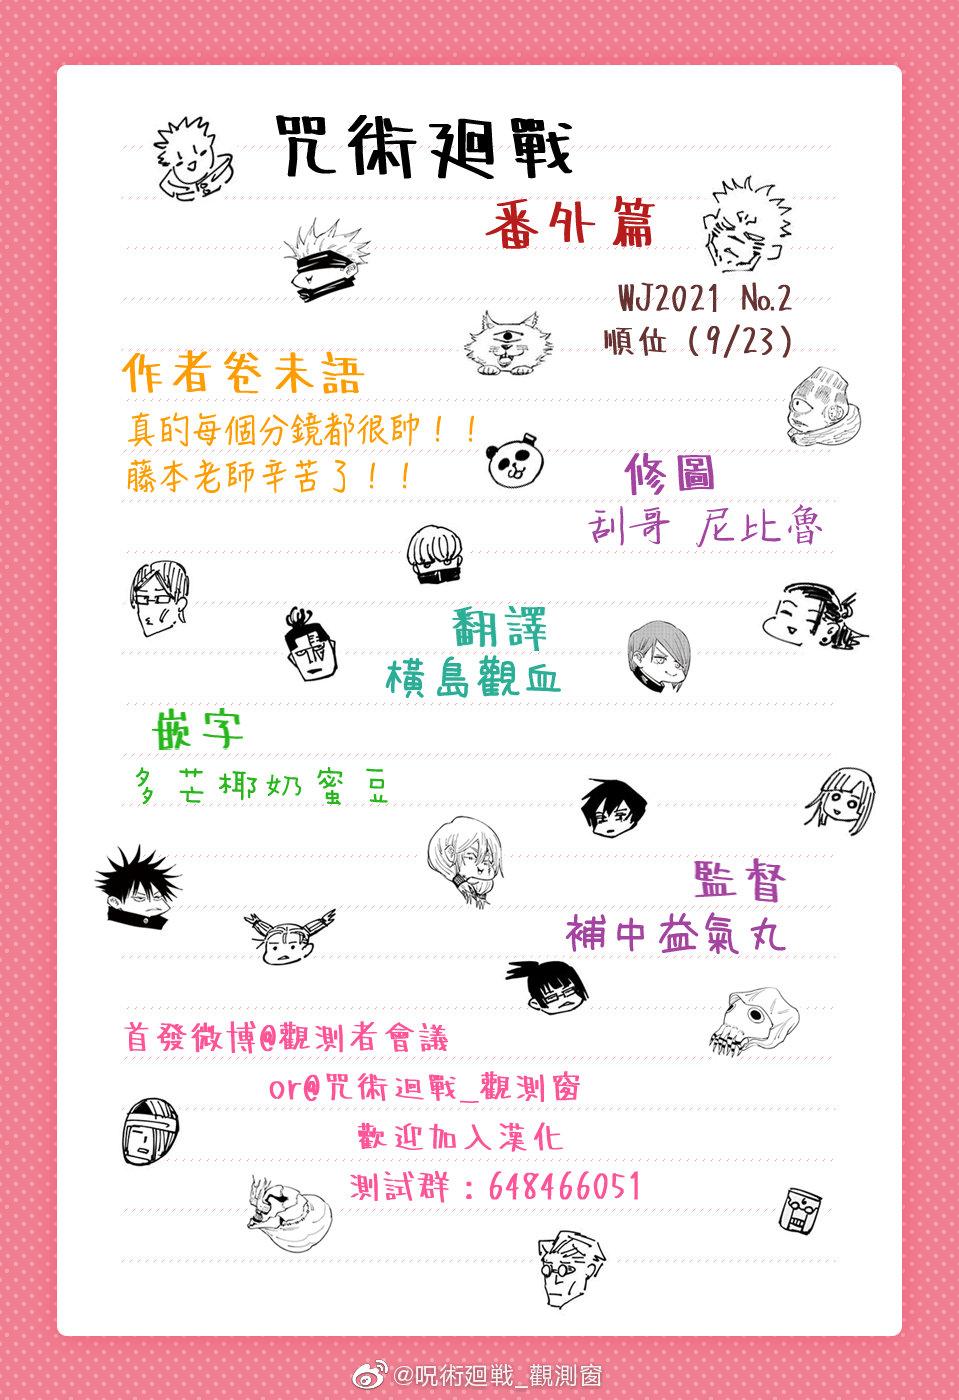 咒術廻戰
番外篇
WJ2021 No.2
順位（9/23）
作者卷末語
真的每個分鏡都很帥！！
藤本老師辛苦了！！
修圖
刮哥 尼比魯
翻譯
橫島觀血
嵌字
多芒椰奶蜜豆
監督
補中益氣丸
首發微博@觀測者會議
or@咒術迴戰_觀測窗
歡迎加入漢化
測試群：648466051
@呪術廻戦_觀測窗